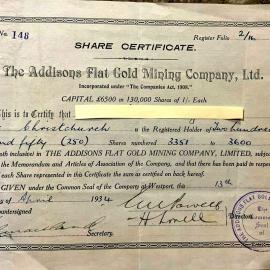 No 148
Register Folio 2/10
SHARE CERTIFICATE.
The Addisons Flat Gold Mining Company, Ltd.
Incorporated under "The Companies Act, 1908."
CAPITAL £6500 in 130,000 Shares of 1/- Each
This is to Certify that
Christchurch is the Registered Holder of Two hundred
and fifty (250) Shares numbered 3351 to 3600
both inclusive in THE ADDISONS FLAT GOLD MINING COMPANY, LIMITED, subject
the Memorandum and Articles of Association of the Company, and that there has been paid in respect
each Share represented in this Certificate the sum as certified on back hereof.
GIVEN under the Common Seal of the Company at Westport, this 13th
of April 1934
Countersigned
Directors
Secretary.
Common
Seal